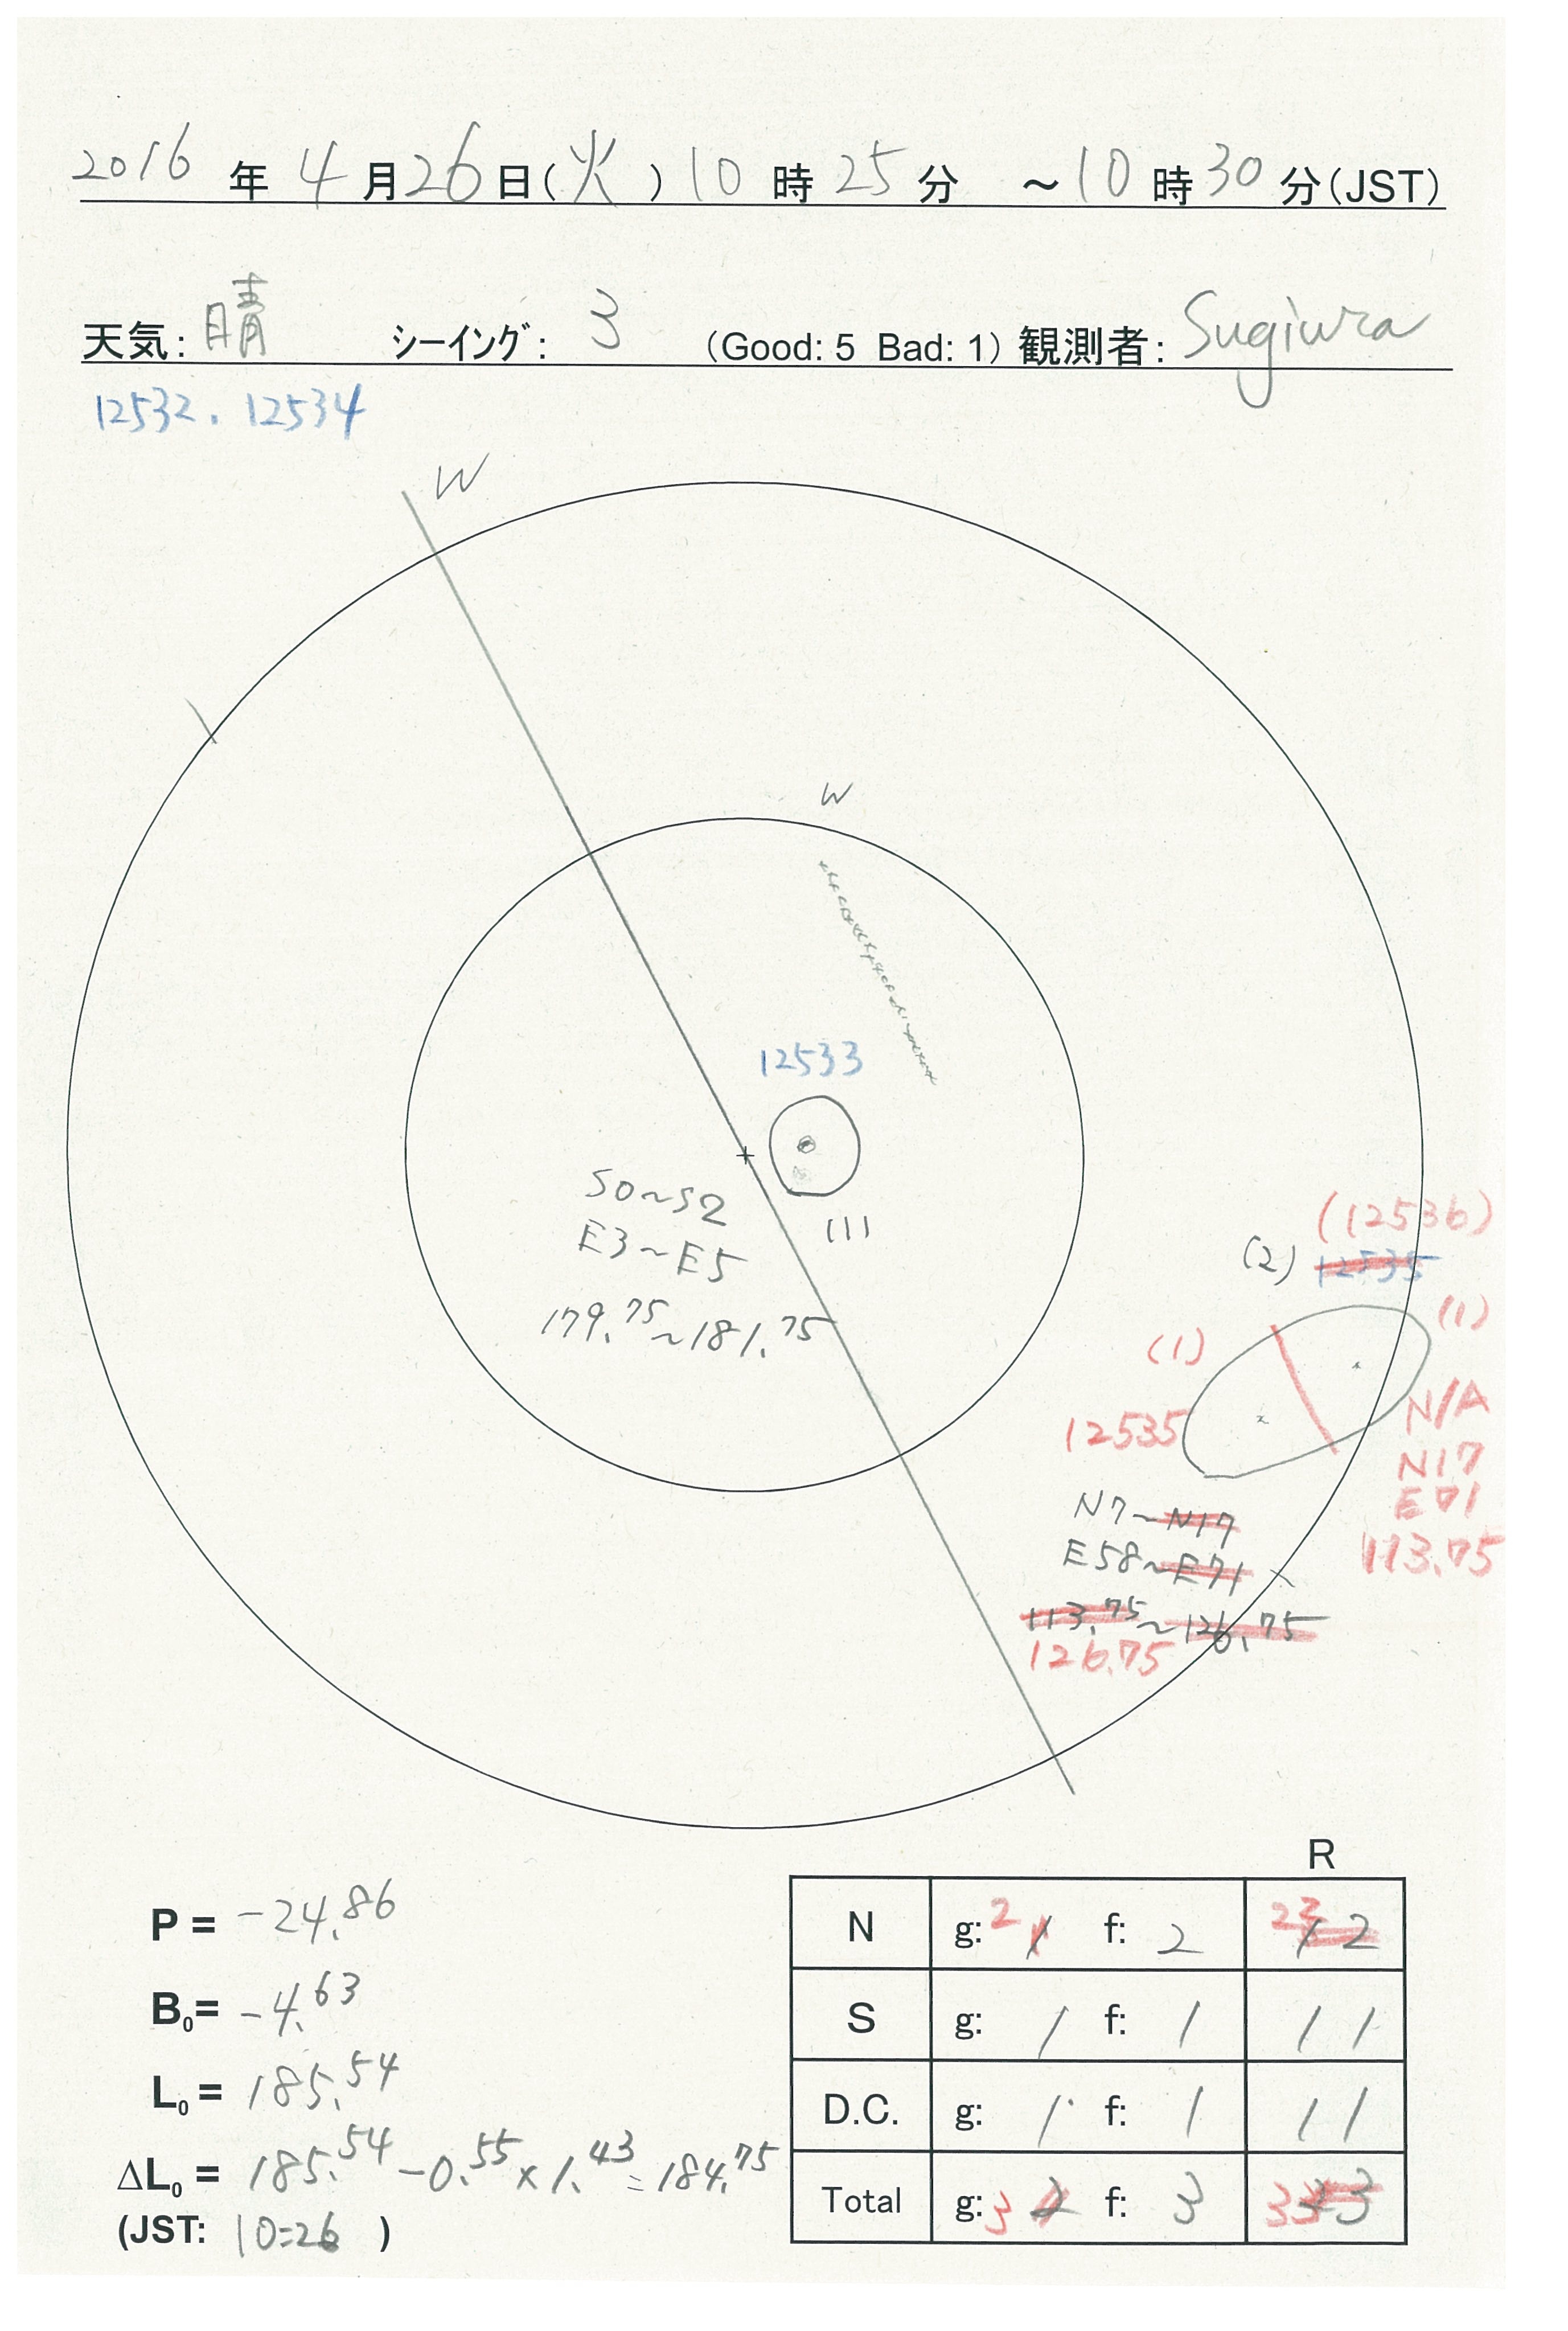 2016 年 4 月 26 日(火) 10 時 25 分 ～ 10 時 30 分(JST)
天気: 晴 シーイング: 3 (Good: 5 Bad: 1) 観測者: Sugiura
12532. 12534
W
W
12533
S0~S2
(1)
E3~E5
179.75~181.75
(12536)
(2) 12535
(1)
(1)
12535
N/A
N17
E71
113.75
N7~N17
E58~E71
113.75~126.75
126.75
R
P = -24.86
N g: 2 1 f: 2 23 1 2
B0= -4.63
S g: 1 f: 1 1 1
L0 = 185.54
D.C. g: 1 f: 1 1 1
ΔL0 = 185.54-0.55×1.43=184.75
Total g: 3 2 f: 3 33 2 3
(JST: 10:26 )